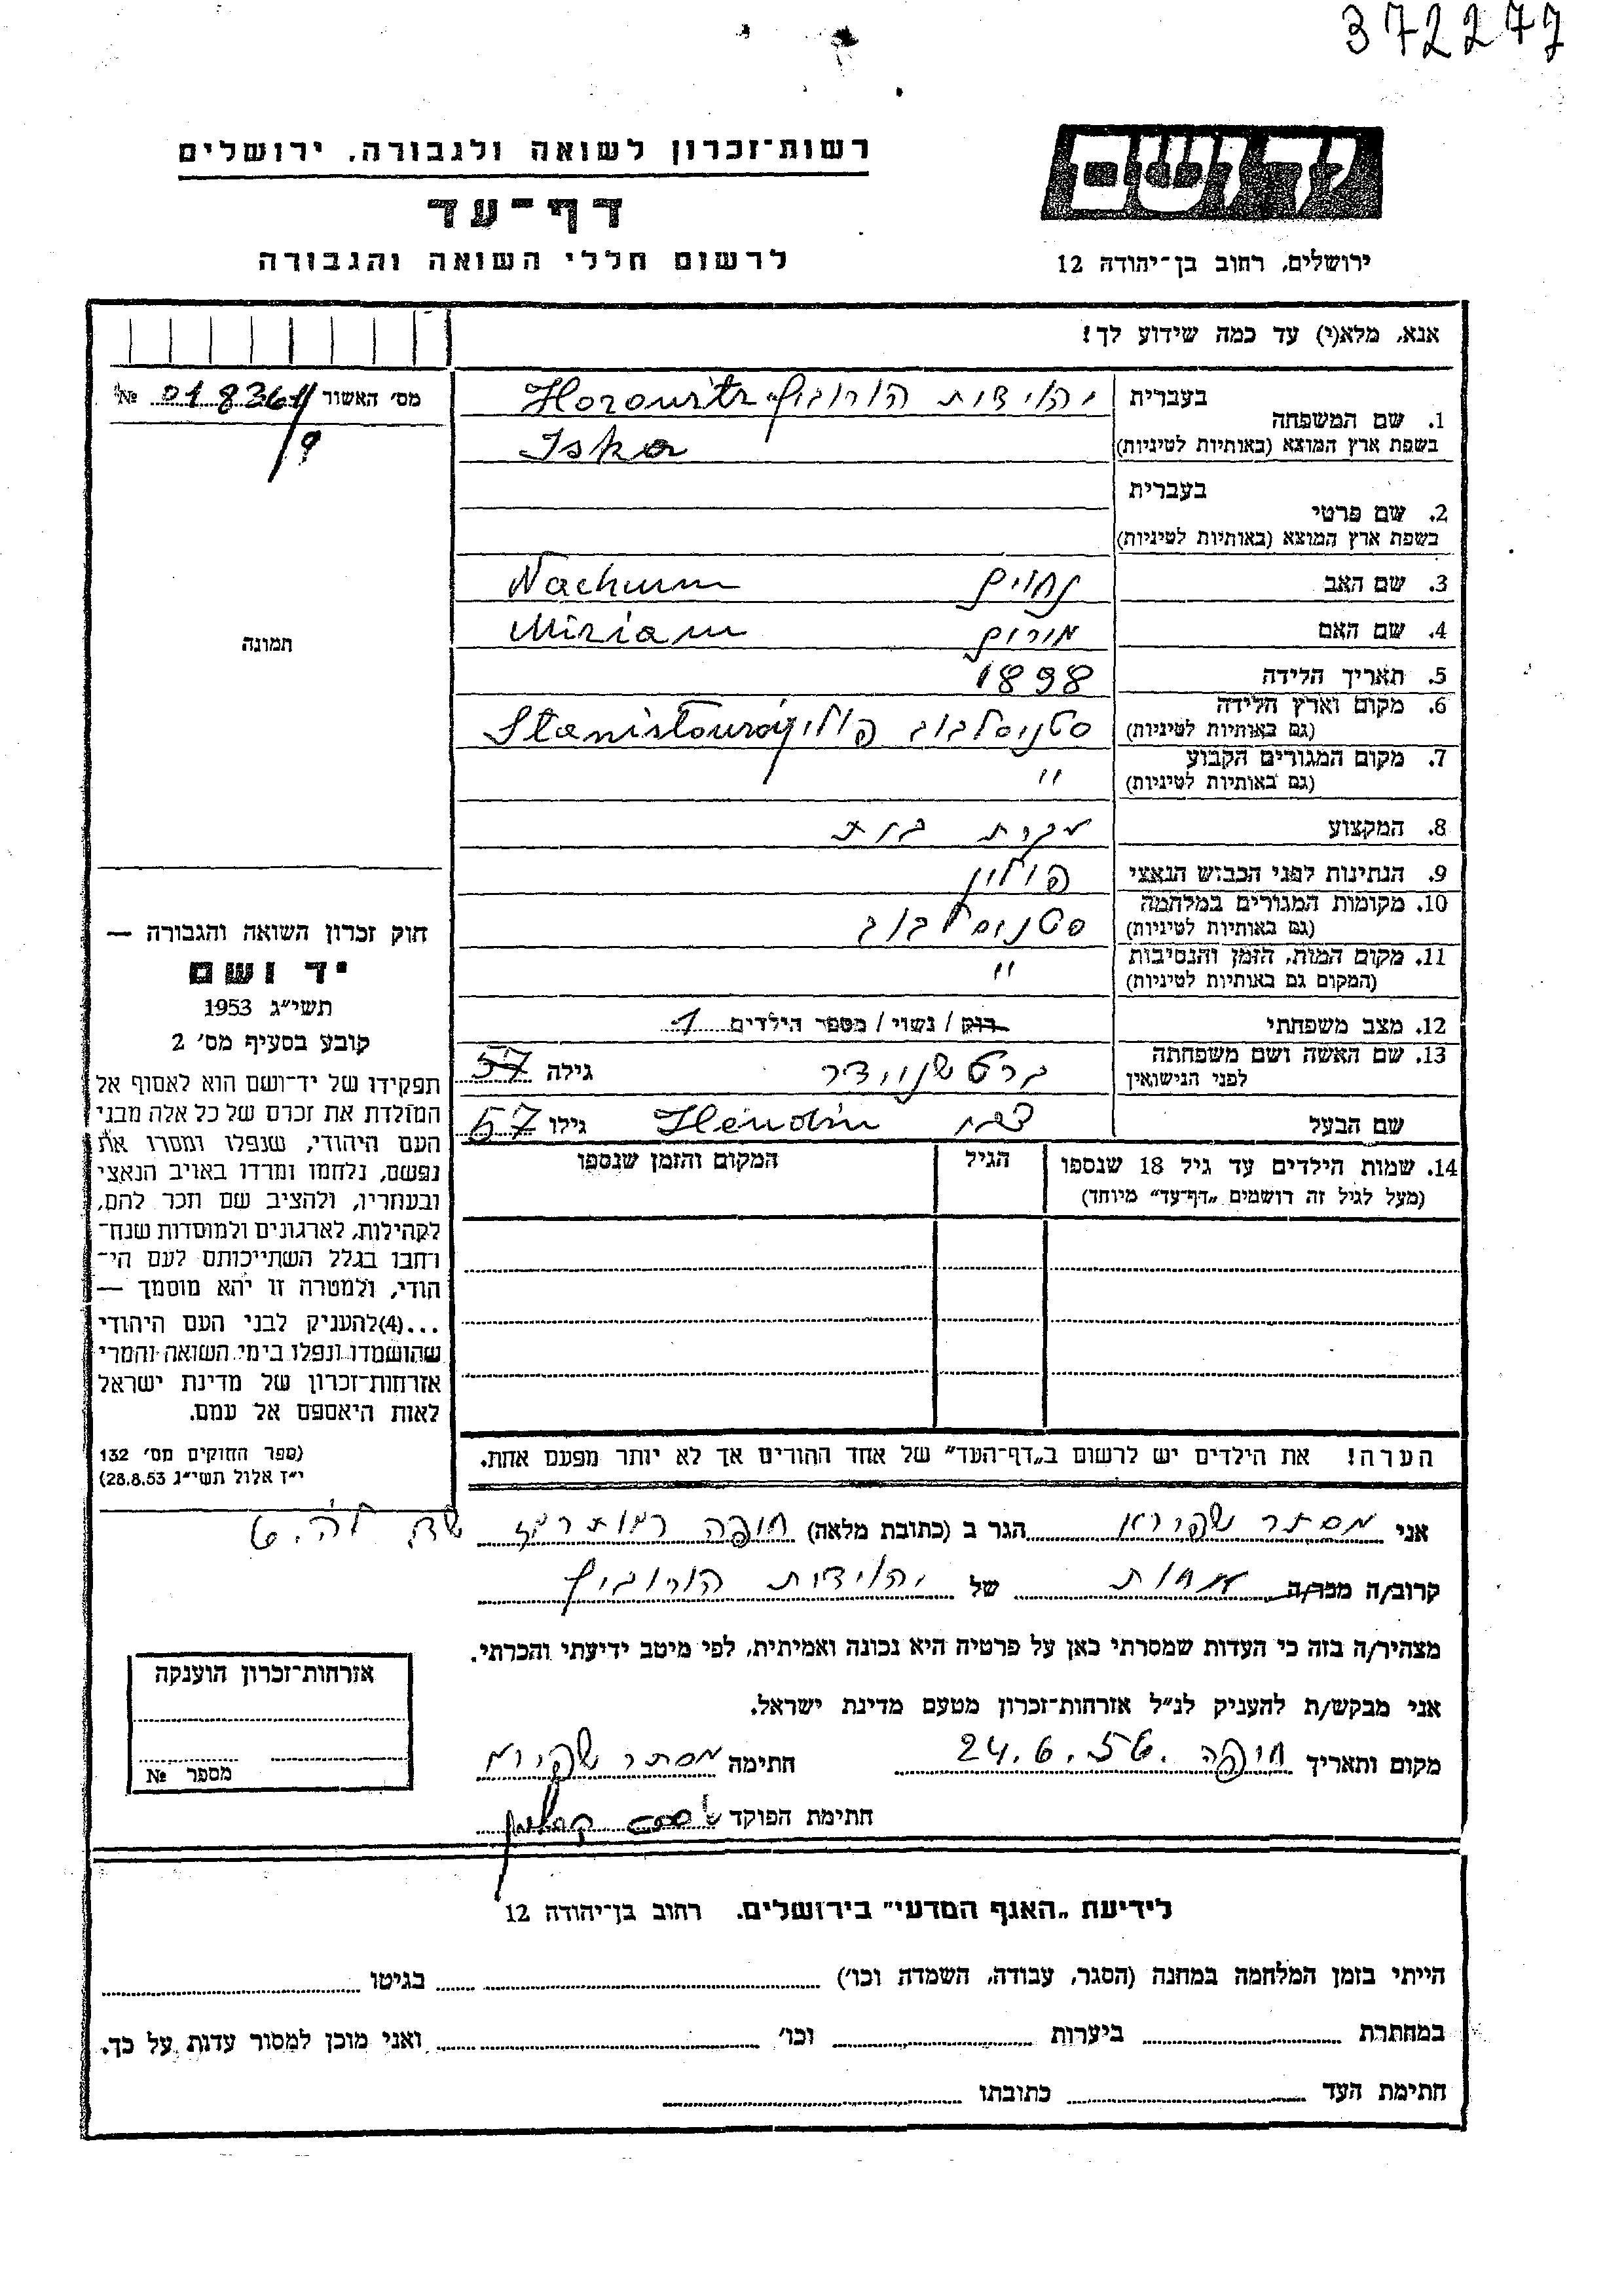 372277
רשות־זכרון לשואה ולגבורה. ירושלים
ידושם
דף־עד
לרשום חללי השואה והגבורה
ירושלים, רחוב בן־יהודה 12
אנא, מלא(י) עד כמה שידוע לך!
מס׳ האשור № 018361
1. שם המשפחה
בעברית יהודית הורוביץ Horowitz
בשפת ארץ המוצא (באותיות לטיניות) Iska
2. שם פרטי
בעברית
בשפת ארץ המוצא (באותיות לטיניות)
3. שם האב נחום Nachum
4. שם האם מירים Miriam
תמונה
5. תאריך הלידה 1898
6. מקום וארץ הלידה
(גם באותיות לטיניות) סטניסלבוב Stanisławów
7. מקום המגורים הקבוע
(גם באותיות לטיניות) "
8. המקצוע בית
9. הנתינות לפני הכבוש הנאצי פולין
10. מקומות המגורים במלחמה
(גם באותיות לטיניות) סטניסלבוב
11. מקום המות, הזמן והנסיבות
(המקום גם באותיות לטיניות) "
12. מצב משפחתי רוק / נשוי / מספר הילדים 1
13. שם האשה ושם משפחתה
לפני הנישואין ברט שניידר גילה 57
שם הבעל Hendin גילו 57
14. שמות הילדים עד גיל 18 שנספו
(מעל לגיל זה רושמים „דף־עד״ מיוחד)
הגיל
המקום והזמן שנספו
חוק זכרון השואה והגבורה —
יד ושם
תשי״ג 1953
קובע בסעיף מס׳ 2
תפקידו של יד־ושם הוא לאסוף אל
המולדת את זכרם של כל אלה מבני
העם היהודי, שנפלו ומסרו את
נפשם, נלחמו ומרדו באויב הנאצי
ובעוזריו, ולהציב שם וזכר להם,
לקהילות, לארגונים ולמוסדות שנח־
רבו בגלל השתייכותם לעם הי־
הודי, ולמטרה זו יהא מוסמך —
...(4)להעניק לבני העם היהודי
שהושמדו ונפלו בימי השואה והמרי
אזרחות־זכרון של מדינת ישראל
לאות היאספם אל עמם.
(ספר החוקים מס׳ 132
י״ז אלול תשי״ג 28.8.53)
הערה! את הילדים יש לרשום ב„דף־העד״ של אחד ההורים אך לא יותר מפעם אחת.
אני אסתר שפירא הגר ב (כתובת מלאה) חיפה
קרוב/ה מכר/ה אחות של יהודית הורוביץ
מצהיר/ה בזה כי העדות שמסרתי כאן על פרטיה היא נכונה ואמיתית, לפי מיטב ידיעתי והכרתי.
אני מבקש/ת להעניק לנ״ל אזרחות־זכרון מטעם מדינת ישראל.
מקום ותאריך חיפה 24.6.56 חתימה אסתר שפירא
חתימת הפוקד
אזרחות־זכרון הוענקה
מספר №
לידיעת „האגף המדעי״ בירושלים. רחוב בן־יהודה 12
הייתי בזמן המלחמה במחנה (הסגר, עבודה, השמדה וכו׳) בגיטו
במחתרת ביערות וכו׳ ואני מוכן למסור עדות על כך.
חתימת העד כתובתו